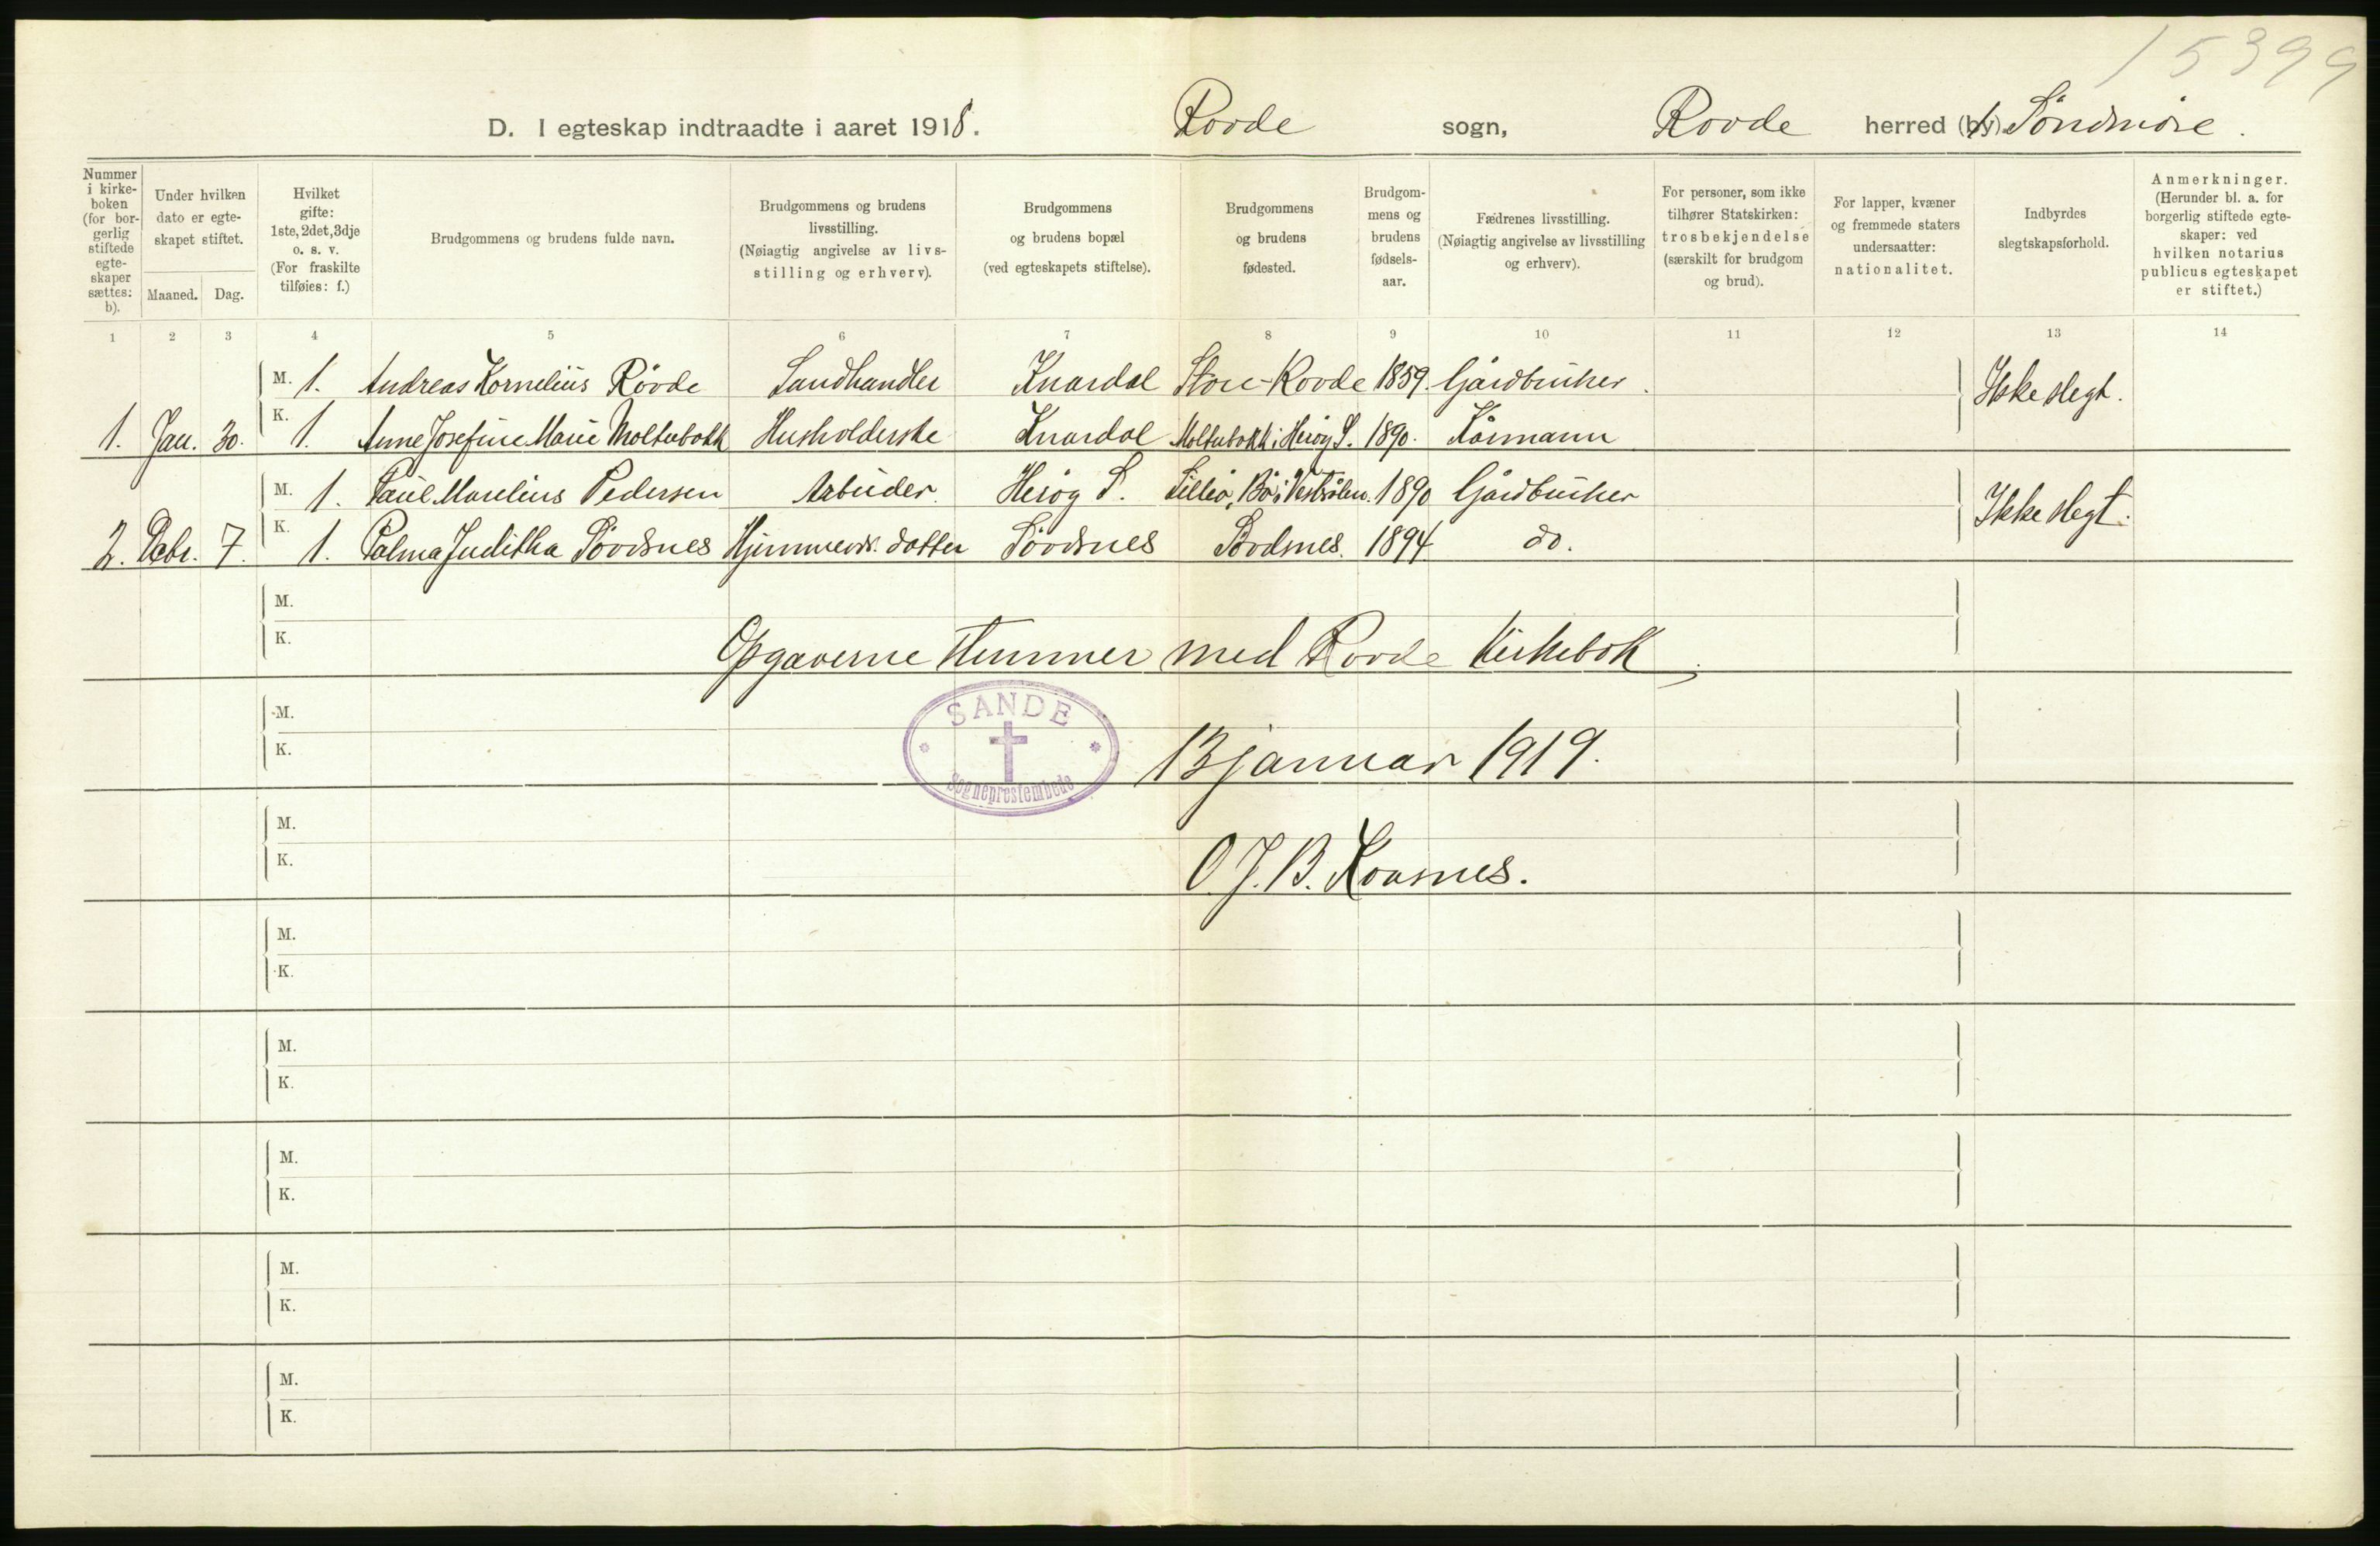 15399
D. I egteskap indtraadte i aaret 1918. Rovde sogn, Rovde herred (by) Söndmöre.
Nummer i kirkeboken (for borgerlig stiftede egteskaper sættes: b).
Under hvilken dato er egteskapet stiftet.
Maaned. Dag.
Hvilket gifte: 1ste, 2det, 3dje o. s. v. (For fraskilte tilføies: f.)
Brudgommens og brudens fulde navn.
Brudgommens og brudens livsstilling. (Nøiagtig angivelse av livsstilling og erhverv).
Brudgommens og brudens bopæl (ved egteskapets stiftelse).
Brudgommens og brudens fødested.
Brudgommens og brudens fødselsaar.
Fædrenes livsstilling. (Nøiagtig angivelse av livsstilling og erhverv).
For personer, som ikke tilhører Statskirken: trosbekjendelse (særskilt for brudgom og brud).
For lapper, kvæner og fremmede staters undersaatter: nationalitet.
Indbyrdes slegtskapsforhold.
Anmerkninger. (Herunder bl. a. for borgerlig stiftede egteskaper: ved hvilken notarius publicus egteskapet er stiftet.)
1 2 3 4 5 6 7 8 9 10 11 12 13 14
M. 1. Andreas Kornelius Rövde Landhandler Knardal Store-Rovde 1859. Gårdbruker. Ikke slegt.
1. Jan. 30. K. 1. Anne Josefine Marie Moltubakk Husholderske Knardal Moltubakk i Heröy S. 1890. Kårmann
M. 1. Paul Marelius Pedersen Arbeider. Heröy S. Lilleö, Bö i Vesterålen. 1890 Gårdbruker Ikke slegt.
2. Debr. 7. K. 1. Palma Juditha Sövdsnes Hjemmevær. datter Sövdsnes Sövdsnes. 1894. do.
M.
K.
Opgaverne stemmer med Rovde Kirkebok
M.
K.
SANDE
Sogneprestembede
13 januar 1919.
M.
K.
O. J. B. Kvasnes.
M.
K.
M.
K.
M.
K.
M.
K.
M.
K.